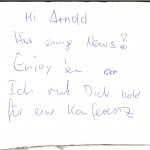 Hi Arnold
Hier einige News!
Enjoy 'em
Ich ruf Dich bald
für eine Konferenz